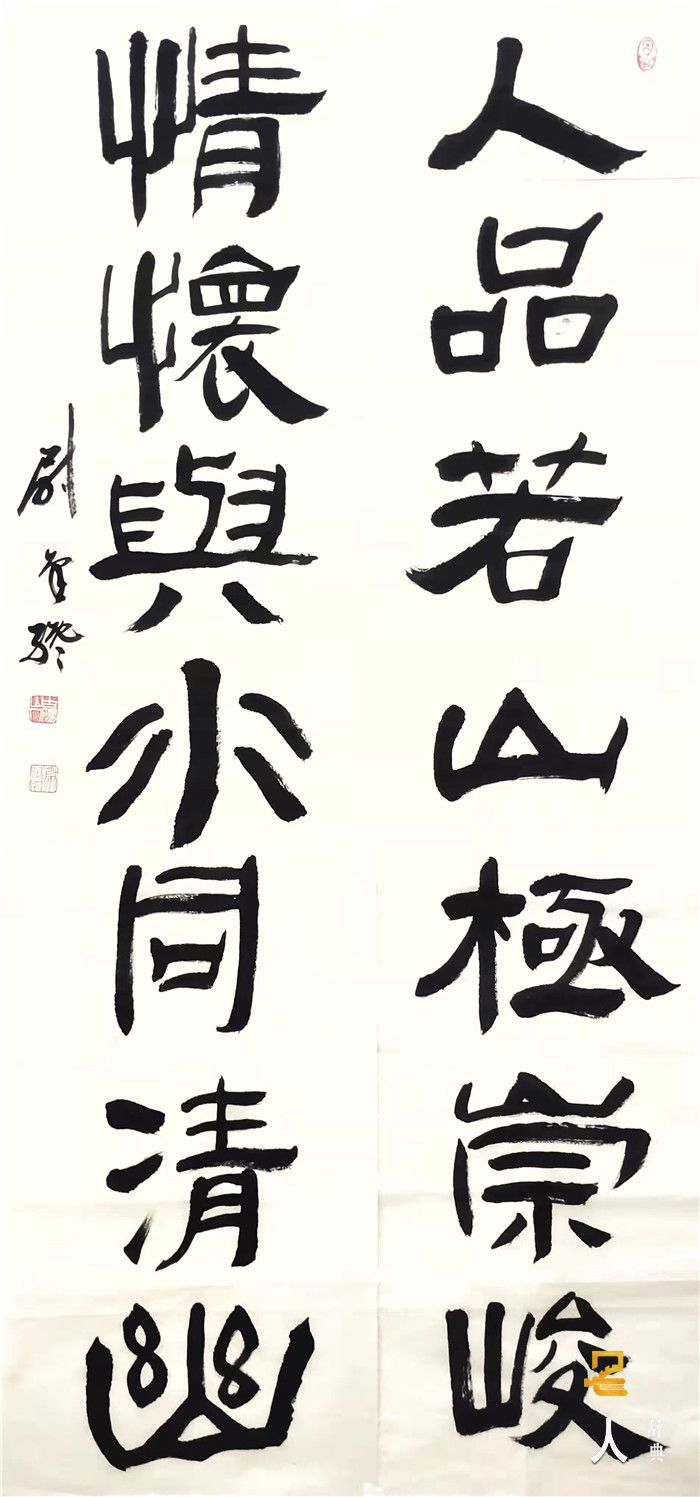 人品若山極崇峻
情懷與水同清幽
名人
辞典